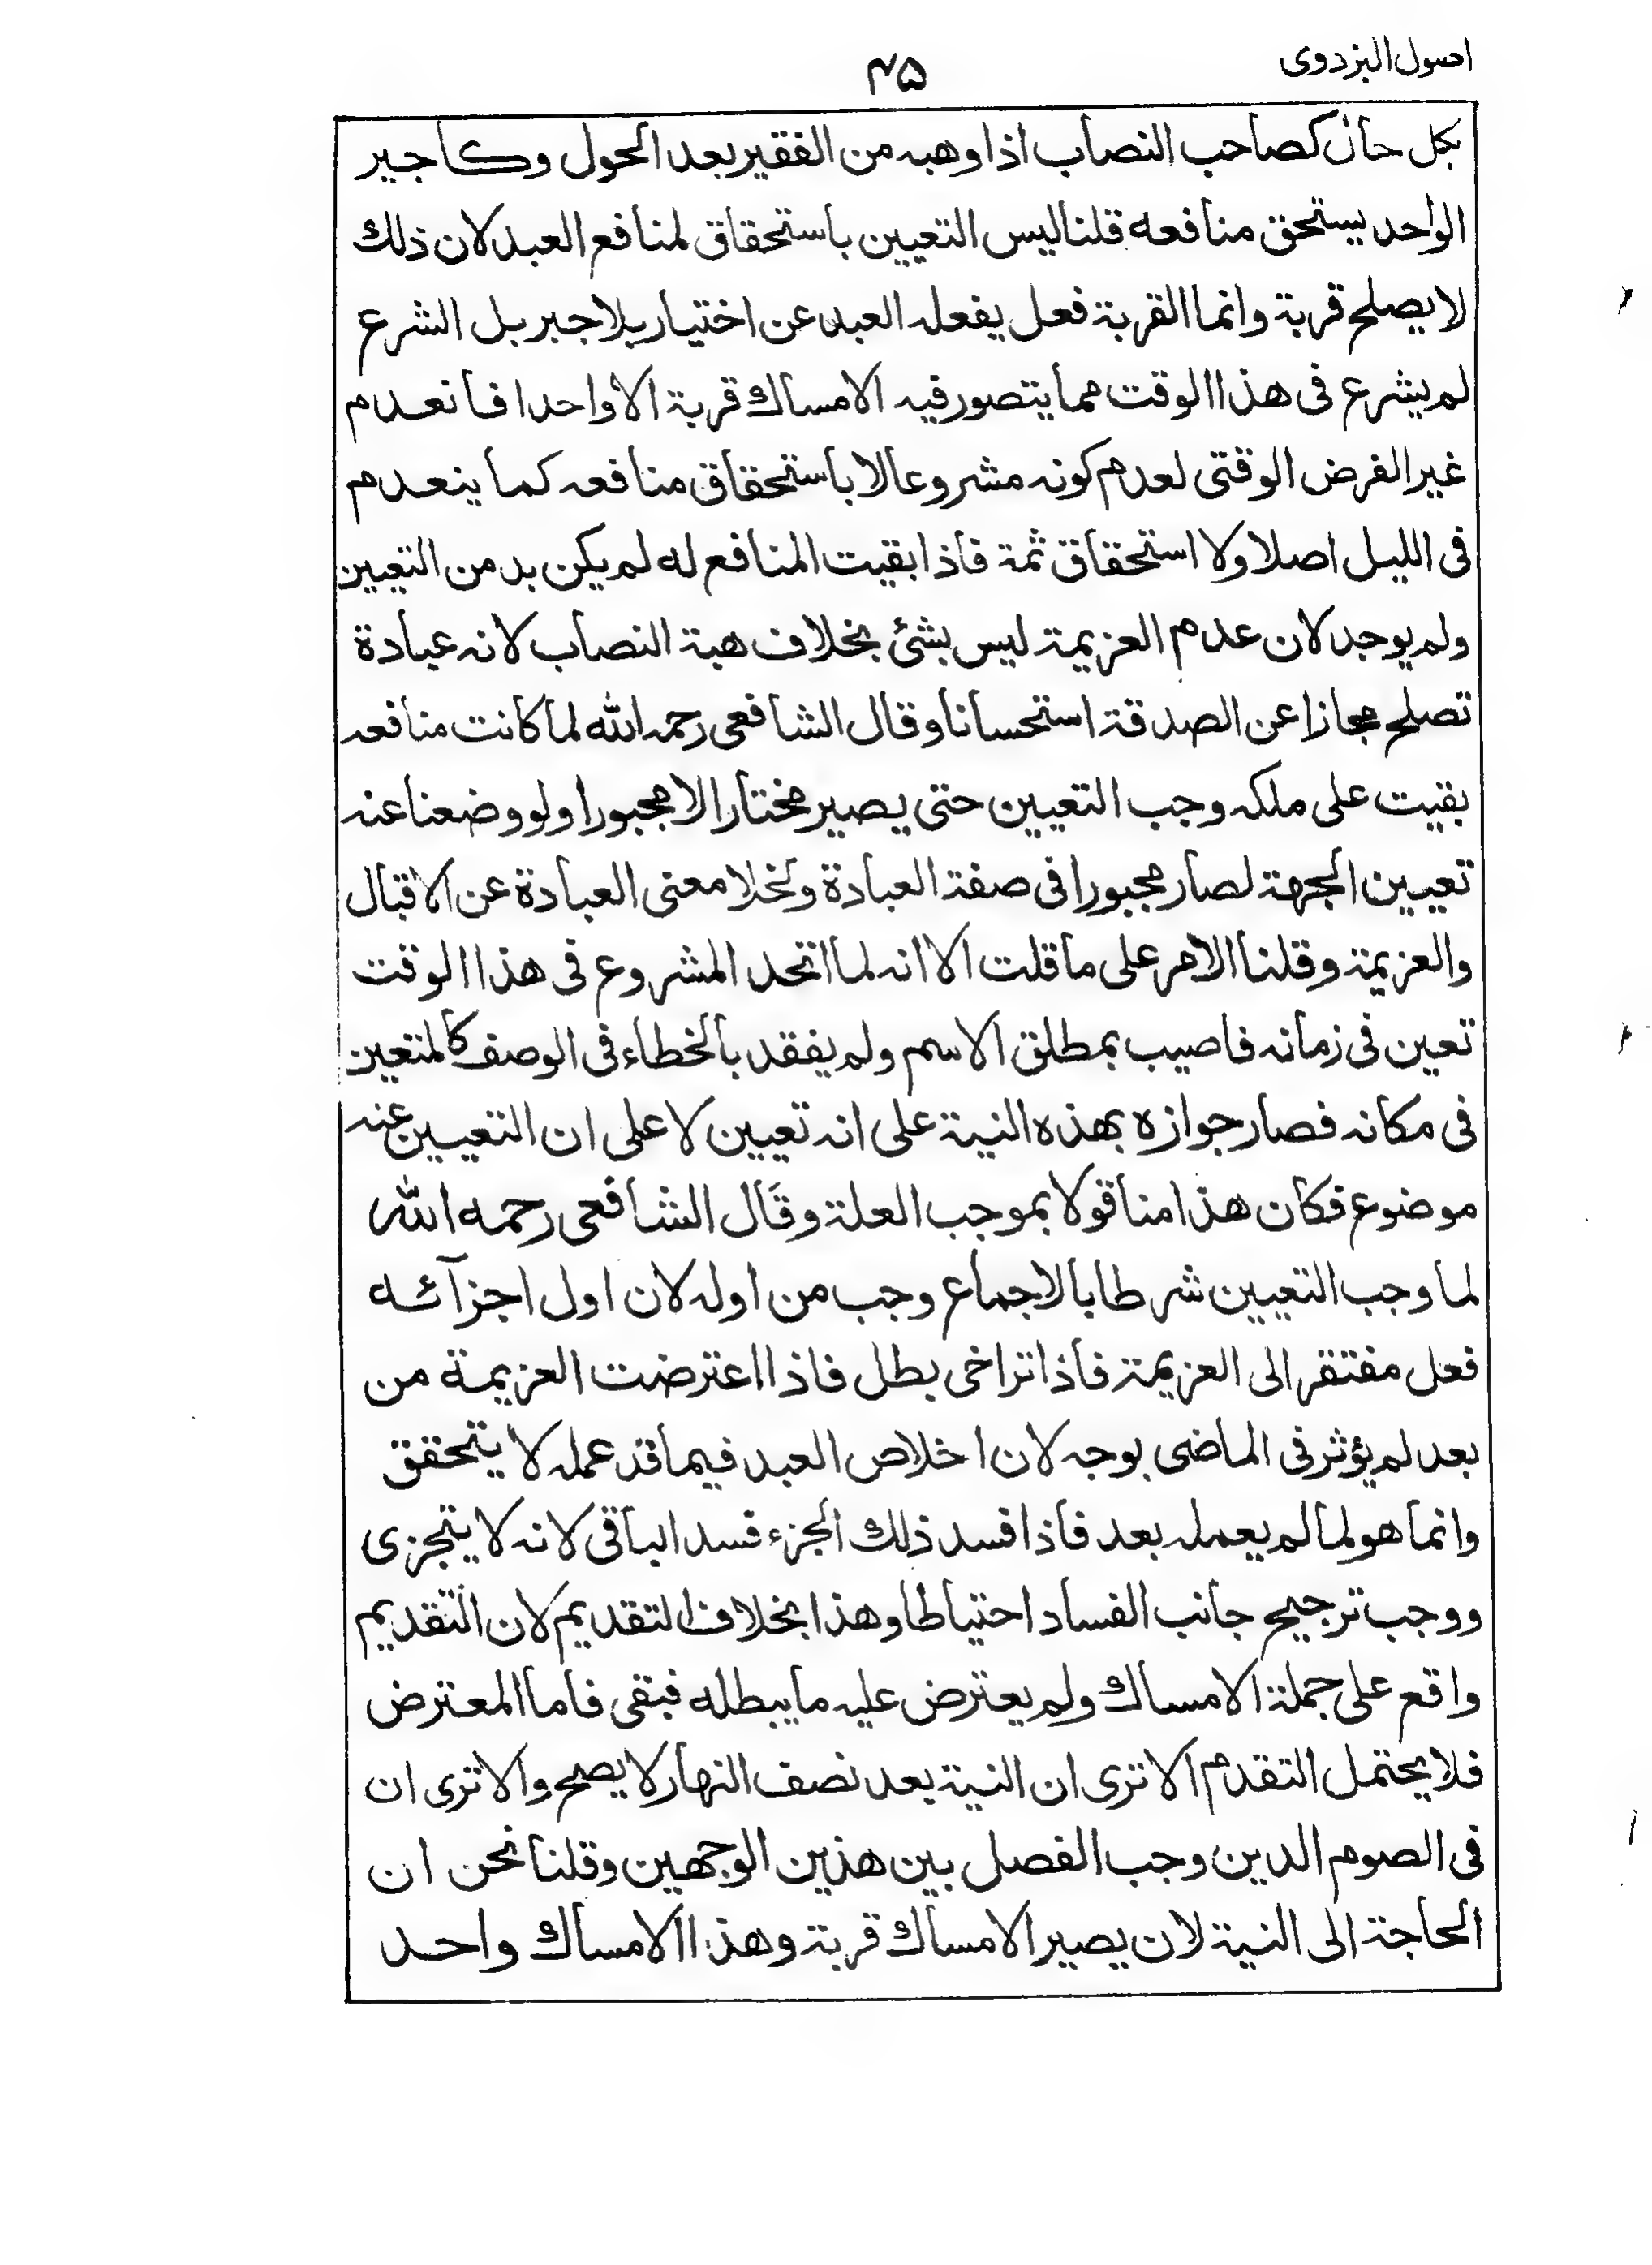 اصول البزدوی
۴۵
بکل حال کصاحب النصاب اذا وهبه من الفقیر بعد الحول وکاجیر
الواحد یستحق منافعه قلنا لیس التعیین باستحقاق لمنافع العبد لان ذلك
لا یصلح قربة وانما القربة فعل یفعله العبد عن اختیار بلا جبر بل الشرع
لم یشرع فی هذا الوقت مما یتصور فیه الامساك قربة الا واحدا فانعدم
غیر الفرض الوقتی لعدم کونه مشروعا لا باستحقاق منافعه کما ینعدم
فی اللیل اصلا ولا استحقاق ثمة فاذا بقیت المنافع له لم یکن بد من التعیین
ولم یوجد لان عدم العزیمة لیس بشئ بخلاف هبة النصاب لانه عبادة
تصلح مجازا عن الصدقة استحسانا وقال الشافعی رحمه الله لما کانت منافعه
بقیت علی ملکه وجب التعیین حتی یصیر مختارا لا مجبورا ولو وضعنا عنه
تعیین الجهة لصار مجبورا فی صفة العبادة ولخلا معنی العبادة عن الاقبال
والعزیمة وقلنا الامر علی ما قلت الا انه لما اتحد المشروع فی هذا الوقت
تعین فی زمانه فاصیب بمطلق الاسم ولم یفقد بالخطاء فی الوصف کالمتعین
فی مکانه فصار جوازه بهذه النیة علی انه تعیین لا علی ان التعیین عنه
موضوع فکان هذا منا قولا بموجب العلة وقال الشافعی رحمه الله
لما وجب التعیین شرطا بالاجماع وجب من اوله لان اول اجزآئه
فعل مفتقر الی العزیمة فاذا تراخی بطل فاذا اعترضت العزیمة من
بعد لم یؤثر فی الماضی بوجه لان اخلاص العبد فیما قد عمله لا یتحقق
وانما هو لما لم یعمله بعد فاذا فسد ذلك الجزء فسد الباقی لانه لا یتجزی
ووجب ترجیح جانب الفساد احتیاطا وهذا بخلاف التقدیم لان التقدیم
واقع علی جملة الامساك ولم یعترض علیه ما یبطله فبقی فاما المعترض
فلا یحتمل التقدم الا تری ان النیة بعد نصف النهار لا یصح والا تری ان
فی الصوم الدین وجب الفصل بین هذین الوجهین وقلنا نحن ان
الحاجة الی النیة لان یصیر الامساك قربة وهذا الامساك واحد